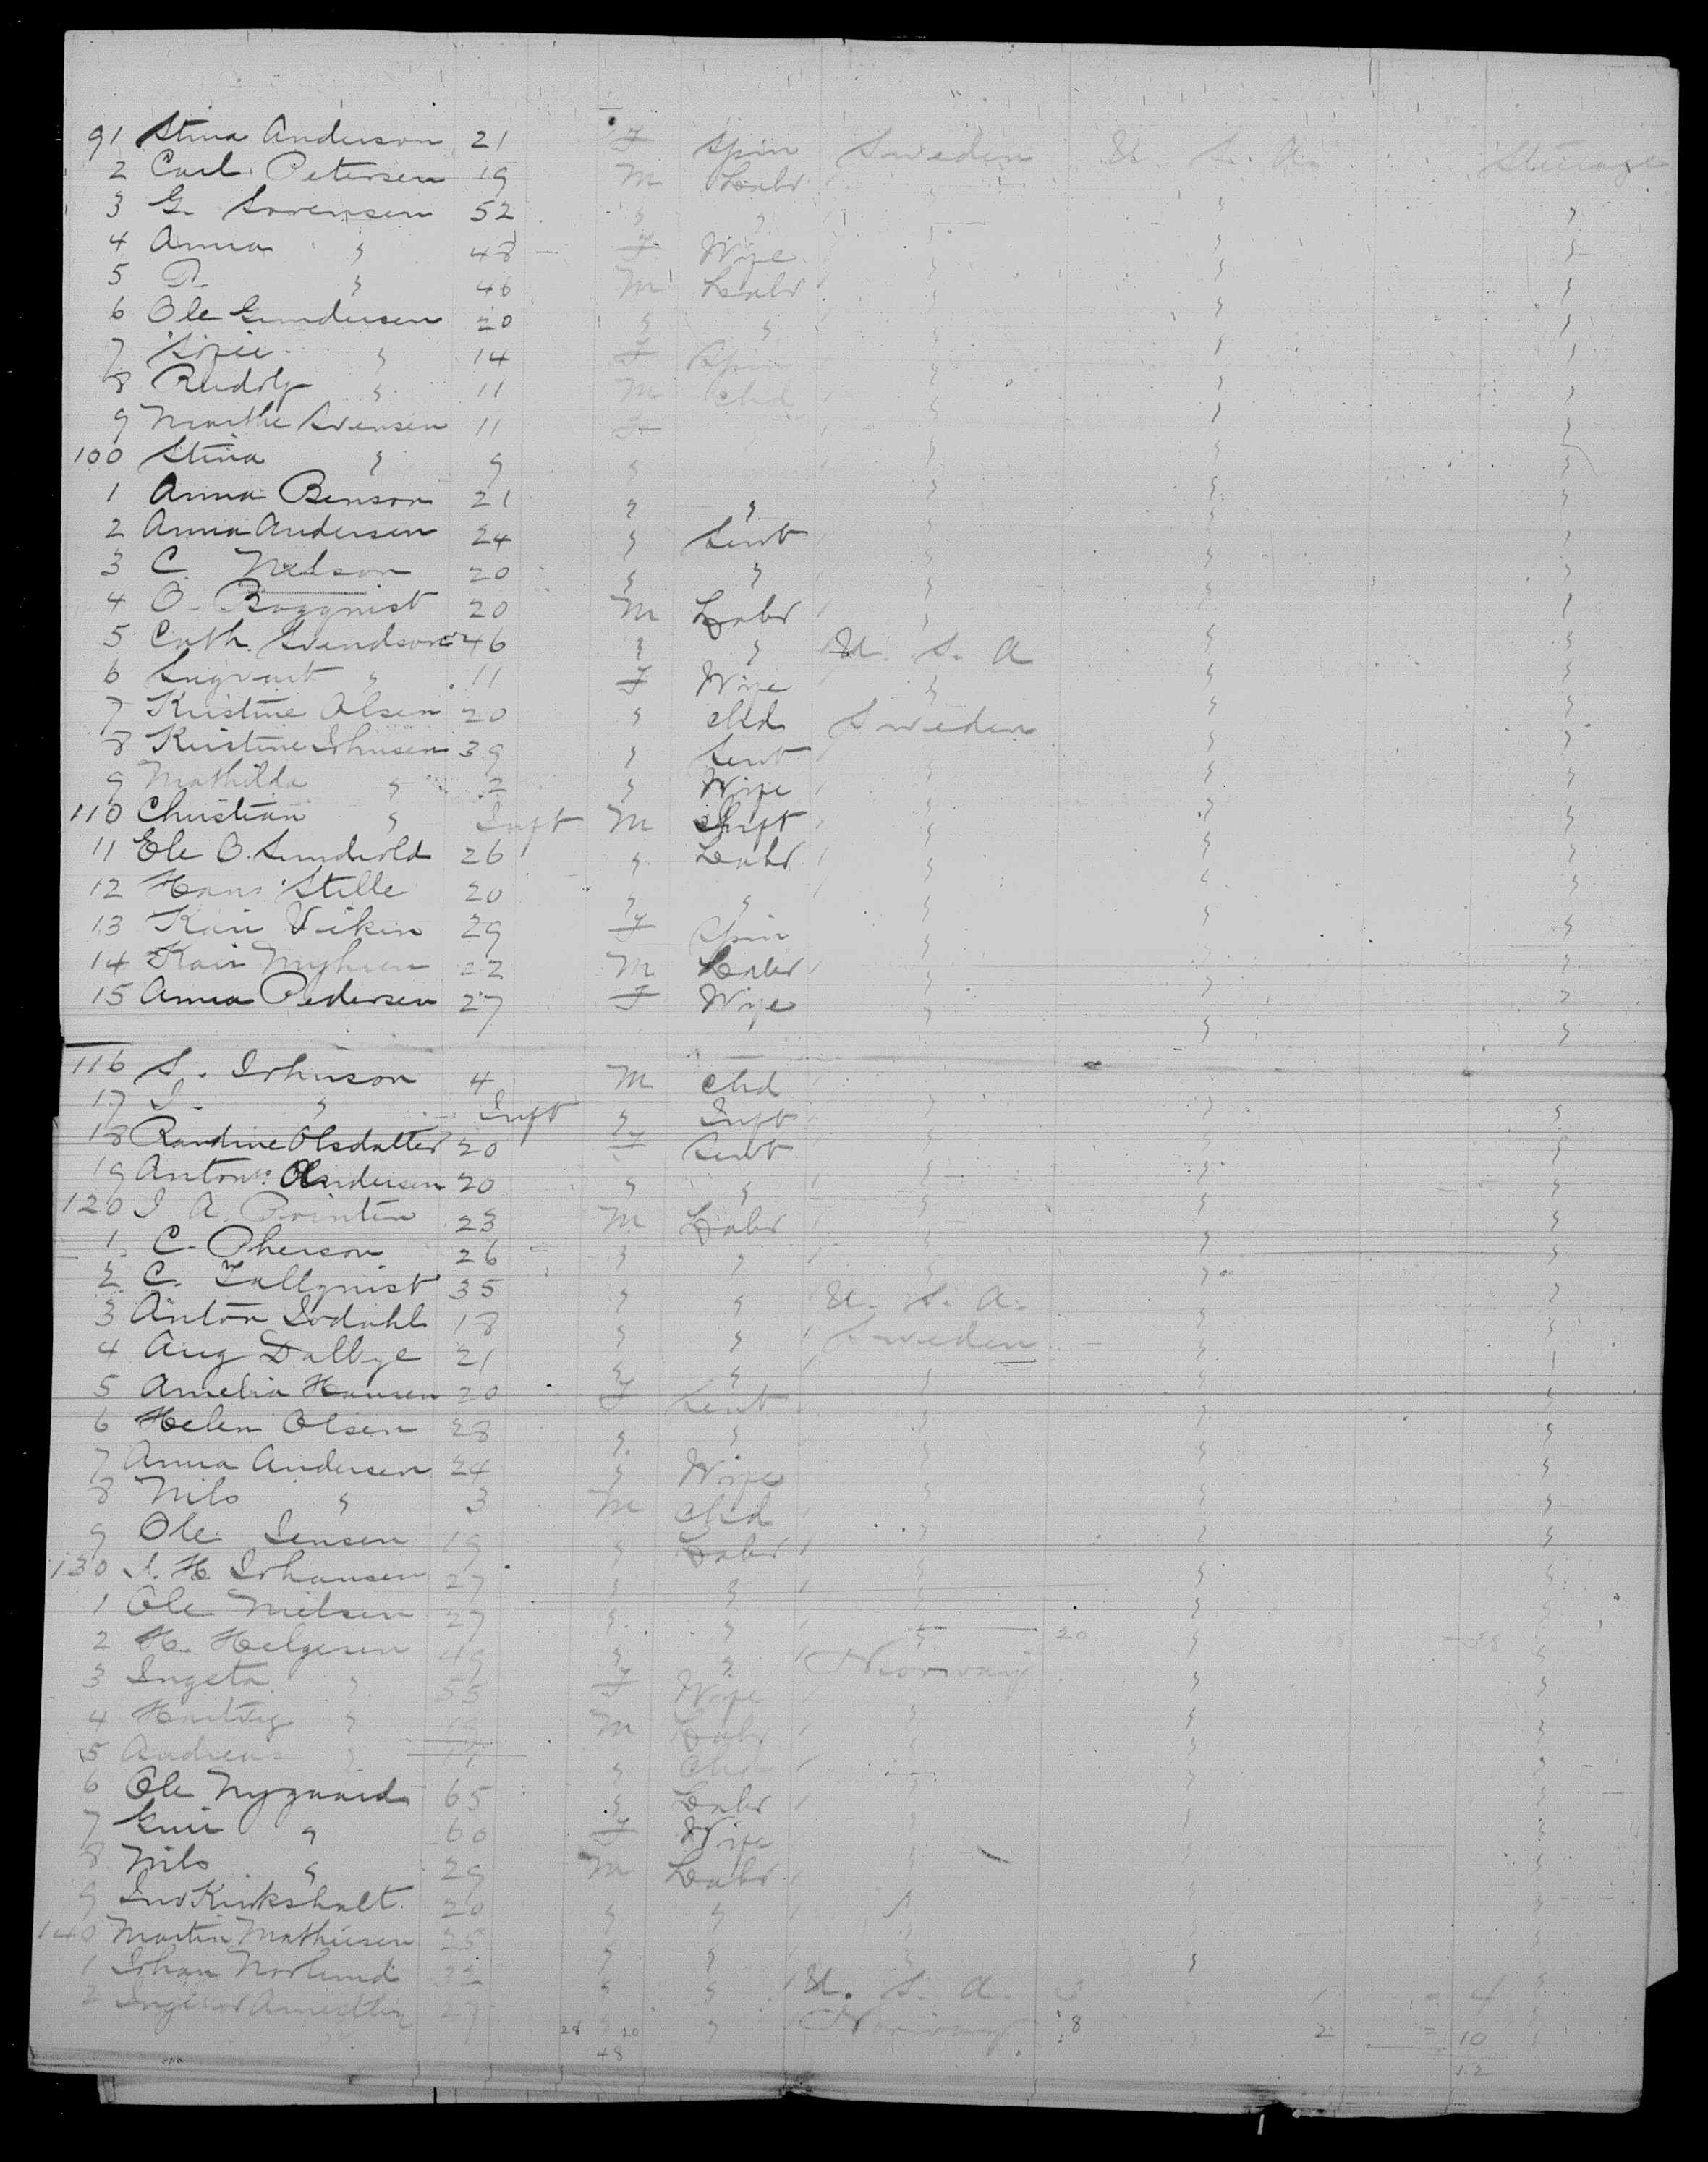 91 Stina Anderson 21 F Spin Sweden U. S. A. Steerage
2 Carl Petersen 19 M Labr " " "
3 G. Sorensen 52 " " " " "
4 Anna " 48 F Wife " " "
5 P. " 46 M Labr " " "
6 Ole Gundersen 20 " " " " "
7 Sofie " 14 F Spin " " "
8 Rudolf " 11 M Chd " " "
9 Marthe Svensen 11 F " " "
100 Stina " 9 " " " "
1 Anna Benson 21 " " " " "
2 Anna Andersen 24 " Servt " " "
3 C. Nelson 20 " " " " "
4 O. Boggnist 20 M Labr " " "
5 Cath. Svendson 46 " " U. S. A " "
6 Sugvart " 11 F Wife " " "
7 Kristine Olsen 20 " Chd Sweden " "
8 Kristine Johnsen 39 " Servt " " "
9 Mathilda " 2 " Wife " " "
110 Christian " Inft M Inft " " "
11 Ole O. Sundvold 26 " Labr " " "
12 Hans Stille 20 " " " " "
13 Kari Viken 29 F Spin " " "
14 Kari Myhren 22 M Labr " " "
15 Anna Pedersen 27 F Wife " " "
116 S. Johnson 4 M Chd " " "
17 J. " Inft " Inft " " "
18 Randine Olsdatter 20 F Servt " " "
19 Anton Andersen 20 " " " " "
120 J. A. Pointen 23 M Labr " " "
1 C. Pherson 26 " " " " "
2 C. Tallqnist 35 " " U. S. A. " "
3 Anton Sodahl 18 " " Sweden " "
4 Aug Dalbye 21 " " " " "
5 Amelia Hansen 20 F Servt " " "
6 Helen Olsen 28 " " " " "
7 Anna Andersen 24 " Wife " " "
8 Nils " 3 M Chd " " "
9 Ole Jensen 19 " Labr " " "
130 J. H. Johansen 27 " " " " "
1 Ole Nielsen 27 " " " 20 " 18 - 38 "
2 H. Helgesen 49 " " Norway " "
3 Ingeta " 55 F Wife " " "
4 Hartvig " 19 M Labr " " "
5 Andreas " 11 " Chd " " "
6 Ole Nygaard 65 " Labr " " "
7 Guri " 60 F Wife " " "
8 Nils " 29 M Labr " " "
9 Kirkshalt 20 " " " " "
140 Martin Mathiesen 25 " " " " "
1 Johan Norlund 32 " " U. S. A. 3 " 1 = 4 "
2 27 " " Norway 8 " 2 = 10 "
28 20
48
12